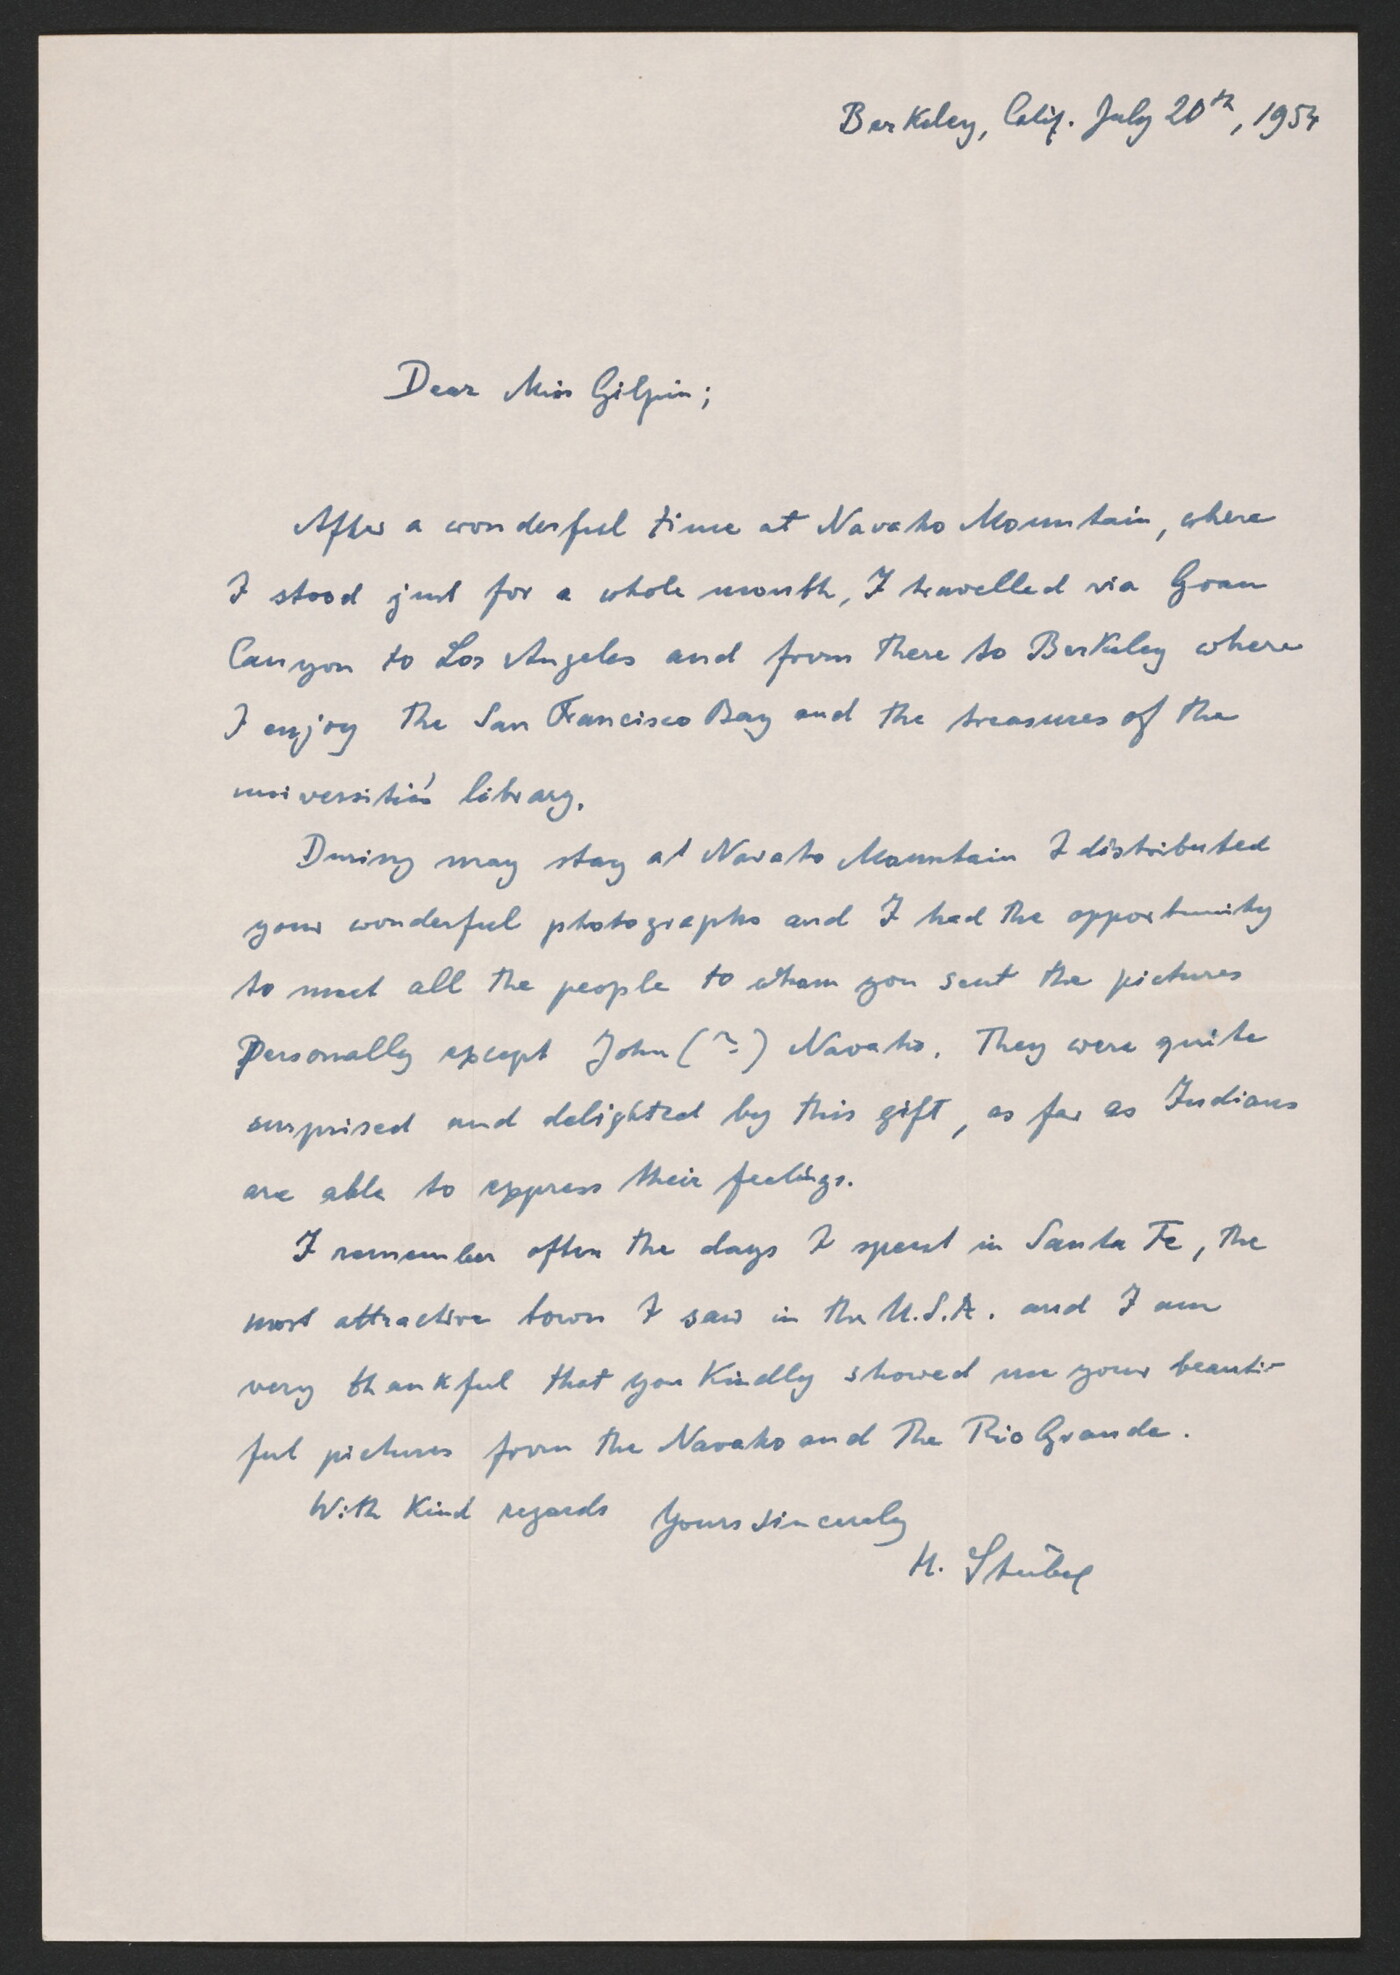 Berkeley, Calif. July 20th, 1954
Dear Miss Gilpin;
After a wonderful time at Navaho Mountain, where
I stood just for a whole month, I travelled via Gran
Canyon to Los Angeles and from there to Berkeley where
I enjoy the San Francisco Bay and the treasures of the
library.
During may stay at Navaho Mountain I distributed
your wonderful photographs and I had the opportunity
to meet all the people to wham you sent the pictures
Personally except John (?) Navaho. They were quite
surprised and delighted by this gift, as far as Indians
are able to express their feelings.
I remember often the days I spent in Santa Fe, the
most attractive town I saw in the U.S.A. and I am
very thankful that you Kindly showed me your beauti-
ful pictures from the Navaho and The Rio Grande.
With Kind regards Yours sincerely
H. Stübel